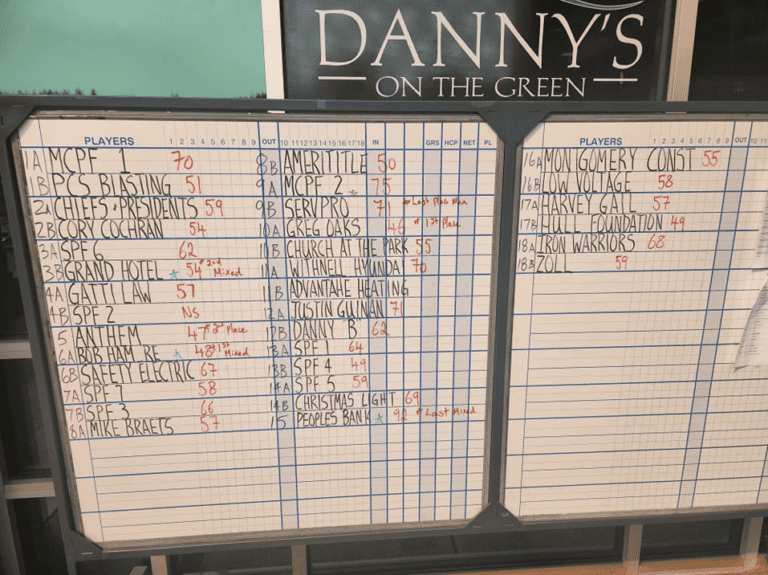 DANNY'S
ON THE GREEN
PLAYERS 1 2 3 4 5 6 7 8 9 OUT 10 11 12 13 14 15 16 17 18 IN GRS HCP NET PL
1A MCPF 1 70
1B PCS BLASTING 51
2A CHIEFS + PRESIDENTS 59
2B CORY COCHRAN 54
3A SPF 6 62
3B GRAND HOTEL * 54 * 2nd Mixed
4A GATTI LAW 57
4B SPF 2 NS
5 ANTHEM 47 * 3rd Place
6A ROB HAM RE * 48 * 1st Mixed
6B SAFETY ELECTRIC 67
7A SPF 7 58
7B SPF 3 66
8A MIKE BRAETS 57
8B AMERITITLE 50
9A MCPF 2 75
9B SERVPRO 71 * Last Place Men
10A GREG OAKS 46 * 1st Place
10B CHURCH AT THE PARK 55
11A WITHNELL HYUNDA 70
11B ADVANTAHE HEATING
12A JUSTIN GUINAN 71
12B DANNY B 62
13A SPF 1 64
13B SPF 4 49
14A SPF 5 59
14B CHRISTMAS LIGHT 69
15 PEOPLES BANK * 92 * Last Mixed
PLAYERS 1 2 3 4 5 6 7 8 9 OUT 10 11
16A MONTGOMERY CONST 55
16B LOW VOLTAGE 58
17A HARVEY GAIL 57
17B HULL FOUNDATION 49
18A IRON WARRIORS 68
18B ZOLL 59